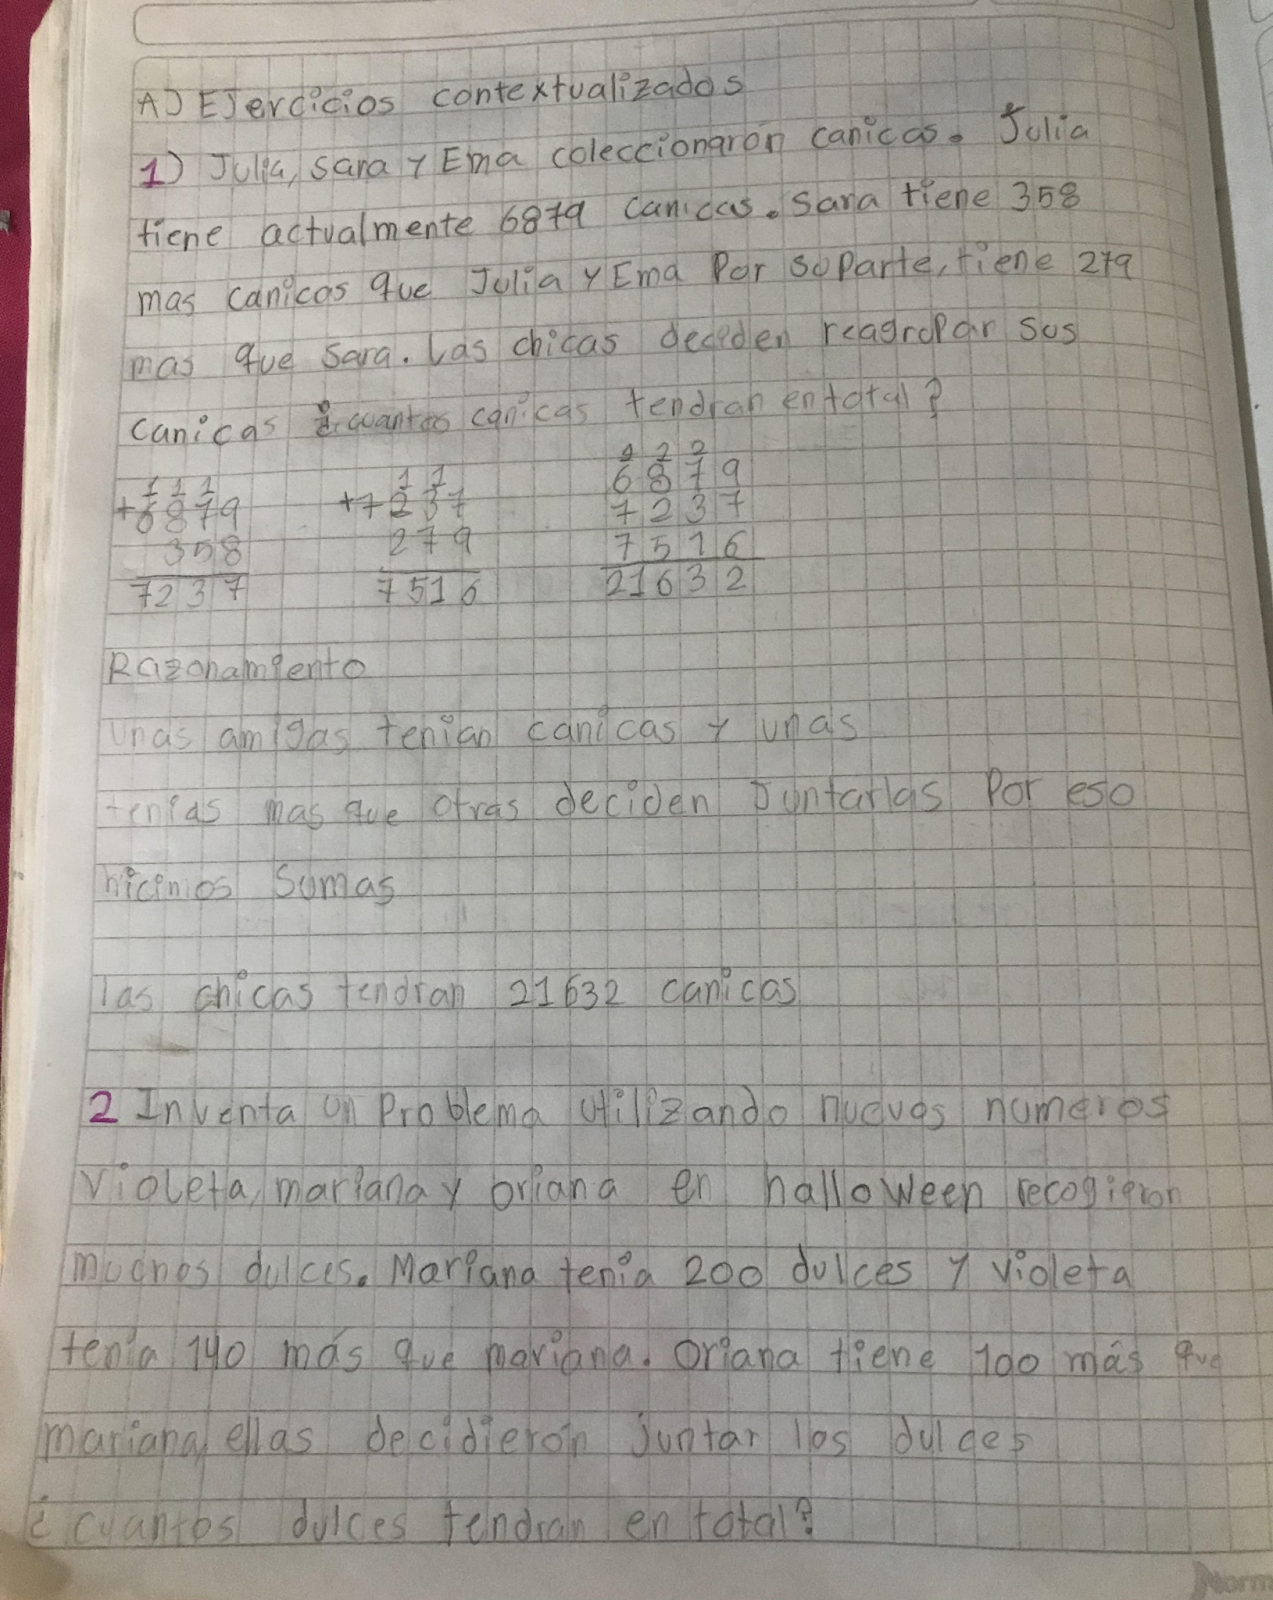 A) Ejercicios contextualizados
1) Julia, Sara y Ema coleccionaron canicas. Julia
tiene actualmente 6879 canicas. Sara tiene 358
mas canicas que Julia y Ema Por su Parte, tiene 279
mas que Sara. Las chicas deciden reagrupar sus
canicas ¿cuantas canicas tendran en total?
1 1 1 1 1 2 2 2
+6879 +7237 6879
358 279 7237
7516
7237 7516 21632
Razonamiento
Unas amigas tenian canicas y unas
tenias mas que otras deciden Juntarlas Por eso
hicimos Sumas
las chicas tendran 21632 canicas
2 Inventa un Problema utilizando nuevos numeros
Violeta, mariana y oriana en halloween recogieron
muchos dulces. Mariana tenia 200 dulces y violeta
tenia 140 más que mariana. Oriana tiene 100 más que
mariana, ellas decidieron juntar los dulces
¿cuantos dulces tendran en total?
Norm